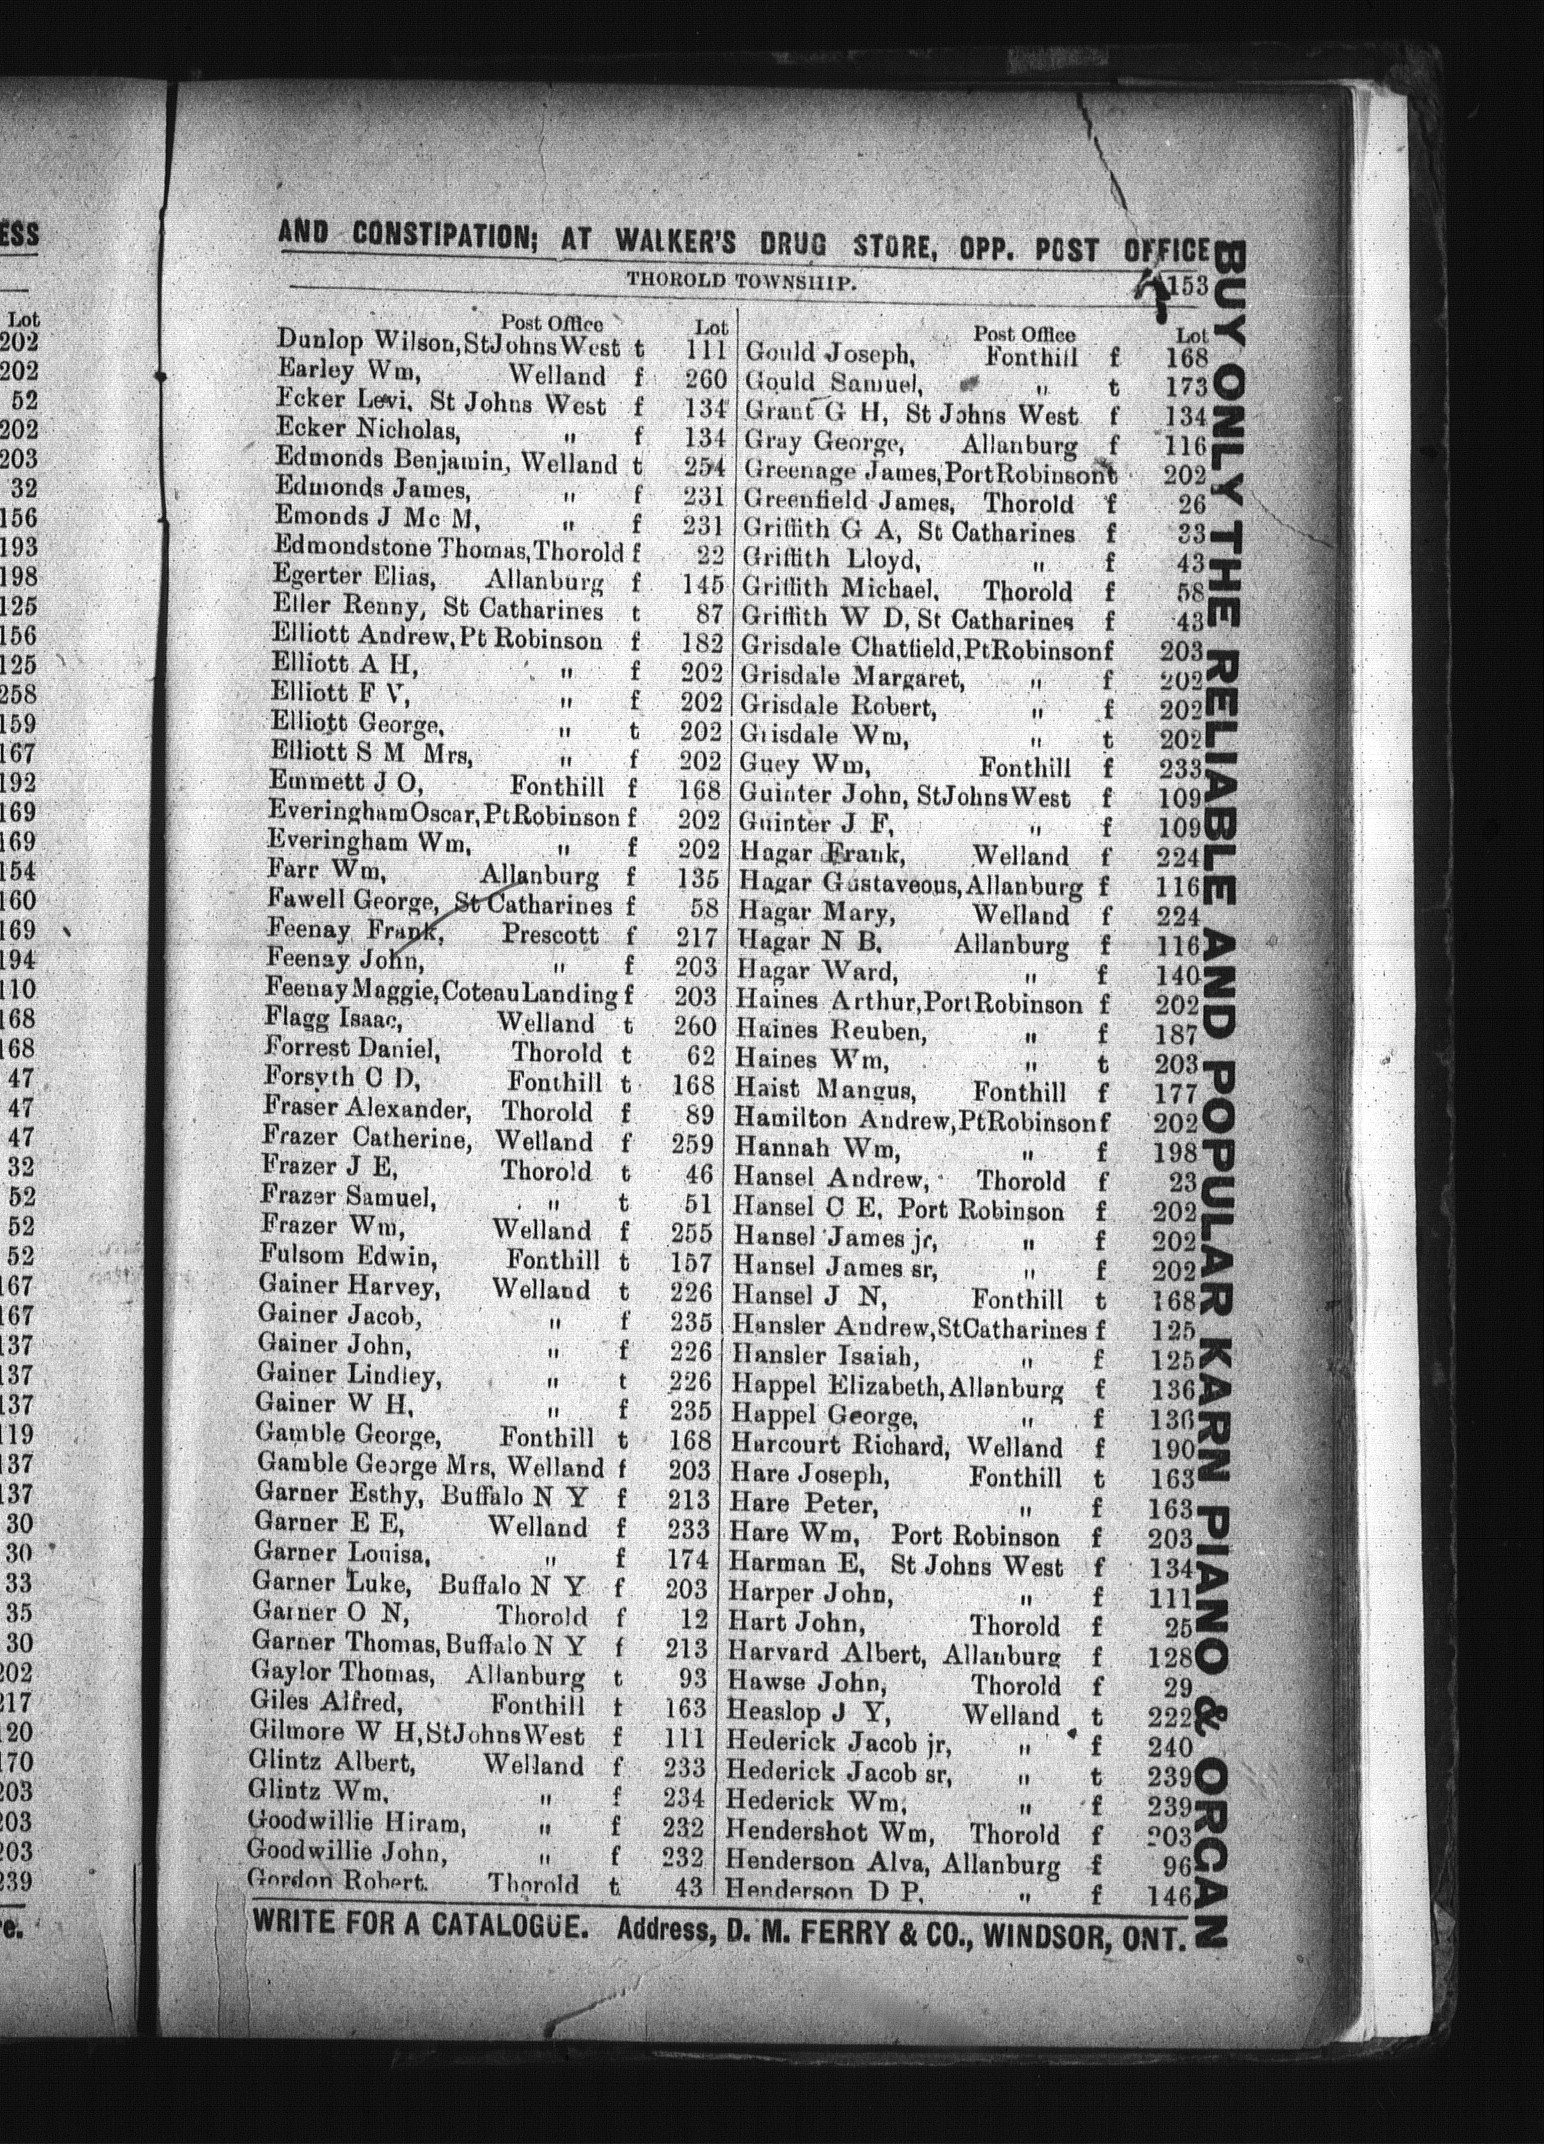 ESS
Lot
202
202
52
202
203
32
156
193
198
125
156
125
258
159
167
192
169
169
154
160
169
194
110
168
168
47
47
47
32
52
52
52
167
167
137
137
137
119
137
137
30
30
33
35
30
202
217
120
170
203
203
203
239
e.
AND CONSTIPATION; AT WALKER'S DRUG STORE, OPP. POST OFFICE
THOROLD TOWNSHIP. 153
Post Office Lot
Dunlop Wilson, St Johns West t 111
Earley Wm, Welland f 260
Ecker Levi, St Johns West f 134
Ecker Nicholas, " f 134
Edmonds Benjamin, Welland t 254
Edmonds James, " f 231
Emonds J Mc M, " f 231
Edmondstone Thomas, Thorold f 22
Egerter Elias, Allanburg f 145
Eller Renny, St Catharines t 87
Elliott Andrew, Pt Robinson f 182
Elliott A H, " f 202
Elliott F V, " f 202
Elliott George, " t 202
Elliott S M Mrs, " f 202
Emmett J O, Fonthill f 168
Everingham Oscar, Pt Robinson f 202
Everingham Wm, " f 202
Farr Wm, Allanburg f 135
Fawell George, St Catharines f 58
Feenay Frank, Prescott f 217
Feenay John, " f 203
Feenay Maggie, Coteau Landing f 203
Flagg Isaac, Welland t 260
Forrest Daniel, Thorold t 62
Forsyth C D, Fonthill t 168
Fraser Alexander, Thorold f 89
Frazer Catherine, Welland f 259
Frazer J E, Thorold t 46
Frazer Samuel, " t 51
Frazer Wm, Welland f 255
Fulsom Edwin, Fonthill t 157
Gainer Harvey, Welland t 226
Gainer Jacob, " f 235
Gainer John, " f 226
Gainer Lindley, " t 226
Gainer W H, " f 235
Gamble George, Fonthill t 168
Gamble George Mrs, Welland f 203
Garner Esthy, Buffalo N Y f 213
Garner E E, Welland f 233
Garner Louisa, " f 174
Garner Luke, Buffalo N Y f 203
Garner O N, Thorold f 12
Garner Thomas, Buffalo N Y f 213
Gaylor Thomas, Allanburg t 93
Giles Alfred, Fonthill t 163
Gilmore W H, St Johns West f 111
Glintz Albert, Welland f 233
Glintz Wm, " f 234
Goodwillie Hiram, " f 232
Goodwillie John, " f 232
Gordon Robert. Thorold t 43
Post Office Lot
Gould Joseph, Fonthill f 168
Gould Samuel, " t 173
Grant G H, St Johns West f 134
Gray George, Allanburg f 116
Greenage James, Port Robinson t 202
Greenfield James, Thorold f 26
Griffith G A, St Catharines f 33
Griffith Lloyd, " f 43
Griffith Michael, Thorold f 58
Griffith W D, St Catharines f 43
Grisdale Chatfield, Pt Robinson f 203
Grisdale Margaret, " f 202
Grisdale Robert, " f 202
Grisdale Wm, " t 202
Guey Wm, Fonthill f 233
Guinter John, St Johns West f 109
Guinter J F, " f 109
Hagar Frank, Welland f 224
Hagar Gustaveous, Allanburg f 116
Hagar Mary, Welland f 224
Hagar N B, Allanburg f 116
Hagar Ward, " f 140
Haines Arthur, Port Robinson f 202
Haines Reuben, " f 187
Haines Wm, " t 203
Haist Mangus, Fonthill f 177
Hamilton Andrew, Pt Robinson f 202
Hannah Wm, " f 198
Hansel Andrew, Thorold f 23
Hansel C E, Port Robinson f 202
Hansel James jr, " f 202
Hansel James sr, " f 202
Hansel J N, Fonthill t 168
Hansler Andrew, St Catharines f 125
Hansler Isaiah, " f 125
Happel Elizabeth, Allanburg f 136
Happel George, " f 136
Harcourt Richard, Welland f 190
Hare Joseph, Fonthill t 163
Hare Peter, " f 163
Hare Wm, Port Robinson f 203
Harman E, St Johns West f 134
Harper John, " f 111
Hart John, Thorold f 25
Harvard Albert, Allanburg f 128
Hawse John, Thorold f 29
Heaslop J Y, Welland t 222
Hederick Jacob jr, " f 240
Hederick Jacob sr, " t 239
Hederick Wm, " f 239
Hendershot Wm, Thorold f 203
Henderson Alva, Allanburg f 96
Henderson D P, " f 146
WRITE FOR A CATALOGUE. Address, D. M. FERRY & CO., WINDSOR, ONT.
BUY ONLY THE RELIABLE AND POPULAR KARN PIANO & ORGAN